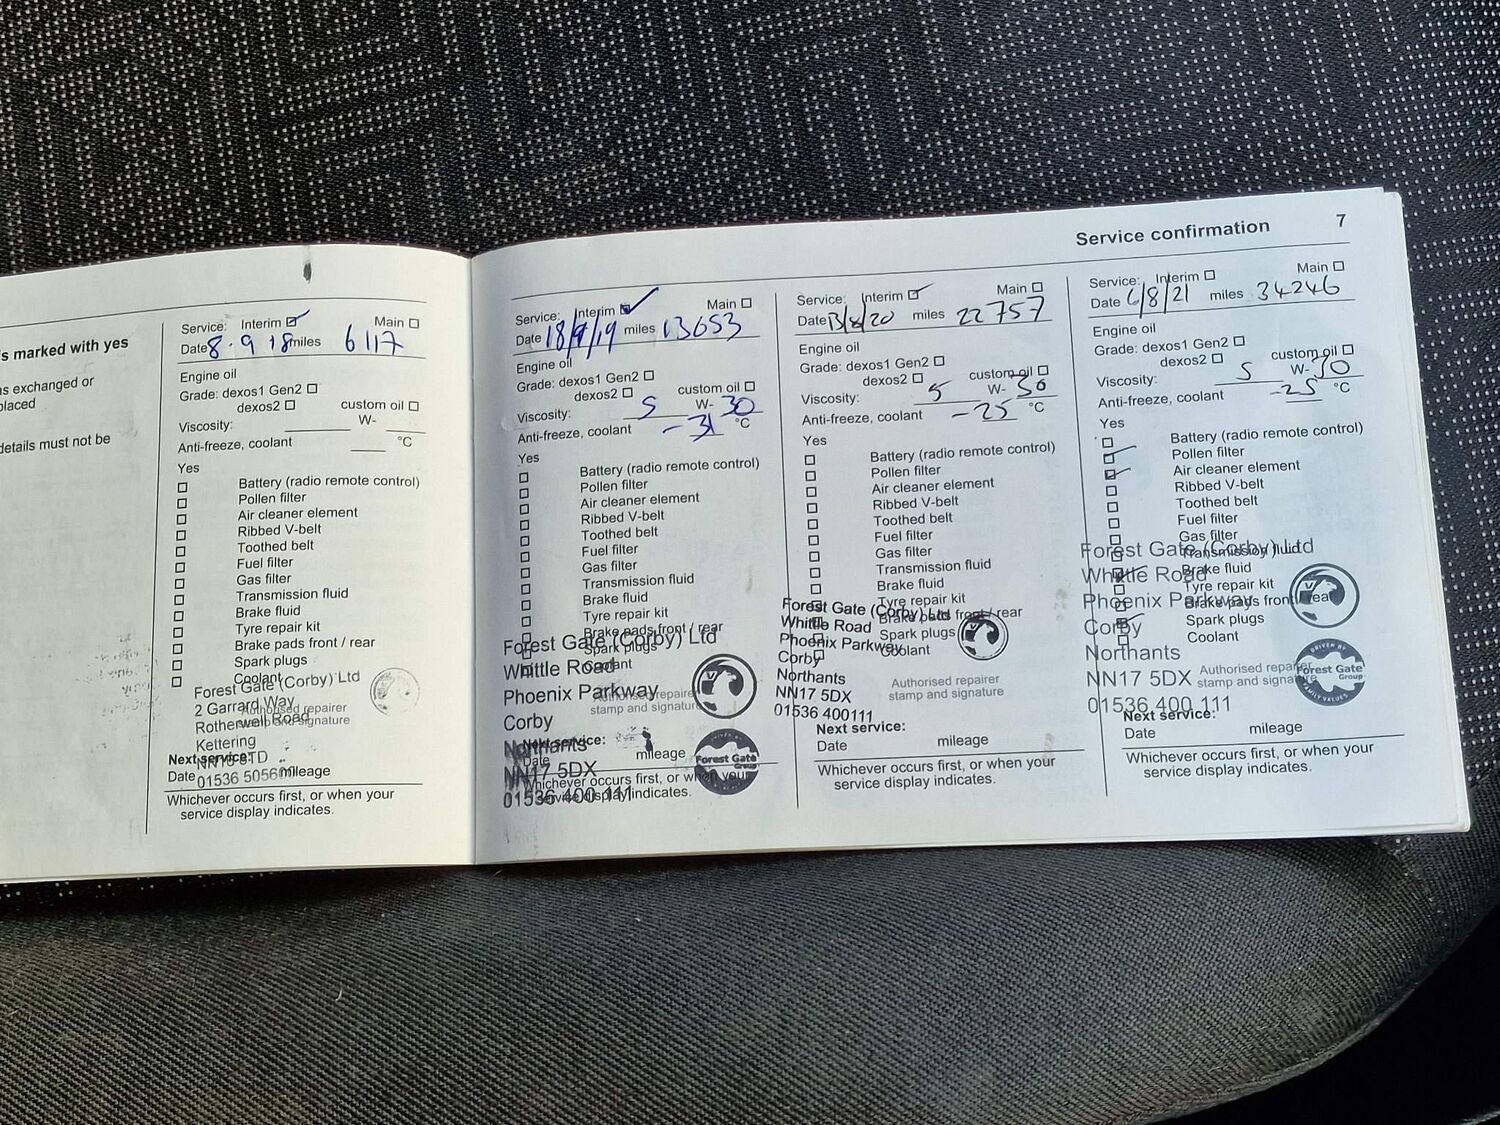 Service confirmation 7
s marked with yes
s exchanged or
placed
details must not be
Service: Interim Main
Date 8.9.18 miles 6117
Engine oil
Grade: dexos1 Gen2
dexos2 custom oil
Viscosity: W-
Anti-freeze, coolant °C
Yes
Battery (radio remote control)
Pollen filter
Air cleaner element
Ribbed V-belt
Toothed belt
Fuel filter
Gas filter
Transmission fluid
Brake fluid
Tyre repair kit
Brake pads front / rear
Spark plugs
Coolant
Forest Gate (Corby) Ltd
2 Garrard Way
Authorised repairer
Rothwell Road
stamp and signature
Kettering
Next service:
Date mileage
01536
Whichever occurs first, or when your
service display indicates.
Service: Interim Main
Date 18/9/19 miles 13653
Engine oil
Grade: dexos1 Gen2
dexos2 custom oil
Viscosity: 5 W- 30
Anti-freeze, coolant -31 °C
Yes
Battery (radio remote control)
Pollen filter
Air cleaner element
Ribbed V-belt
Toothed belt
Fuel filter
Gas filter
Transmission fluid
Brake fluid
Tyre repair kit
Brake pads front / rear
Spark plugs
Coolant
Forest Gate (Corby) Ltd
Whittle Road
Phoenix Parkway
Authorised repairer
stamp and signature
Corby
Northants
Next service:
Date mileage
NN17 5DX
01536 400 111
Forest Gate
Group
Whichever occurs first, or when your
service display indicates.
Service: Interim Main
Date 13/8/20 miles 22757
Engine oil
Grade: dexos1 Gen2
dexos2 custom oil
Viscosity: 5 W- 30
Anti-freeze, coolant -25 °C
Yes
Battery (radio remote control)
Pollen filter
Air cleaner element
Ribbed V-belt
Toothed belt
Fuel filter
Gas filter
Transmission fluid
Brake fluid
Tyre repair kit
Brake pads front / rear
Spark plugs
Coolant
Forest Gate (Corby) Ltd
Whittle Road
Phoenix Parkway
Corby
Northants
NN17 5DX
01536 400111
Authorised repairer
stamp and signature
Next service:
Date mileage
Whichever occurs first, or when your
service display indicates.
Service: Interim Main
Date 6/8/21 miles 34246
Engine oil
Grade: dexos1 Gen2
dexos2 custom oil
Viscosity: 5 W- 30
Anti-freeze, coolant -25 °C
Yes
Battery (radio remote control)
Pollen filter
Air cleaner element
Ribbed V-belt
Toothed belt
Fuel filter
Gas filter
Transmission fluid
Brake fluid
Tyre repair kit
Brake pads front / rear
Spark plugs
Coolant
Forest Gate (Corby) Ltd
Whittle Road
Phoenix Parkway
Corby
Northants
NN17 5DX
01536 400 111
Authorised repairer
stamp and signature
DRIVEN BY
Forest Gate
Group
FAMILY VALUES
Next service:
Date mileage
Whichever occurs first, or when your
service display indicates.